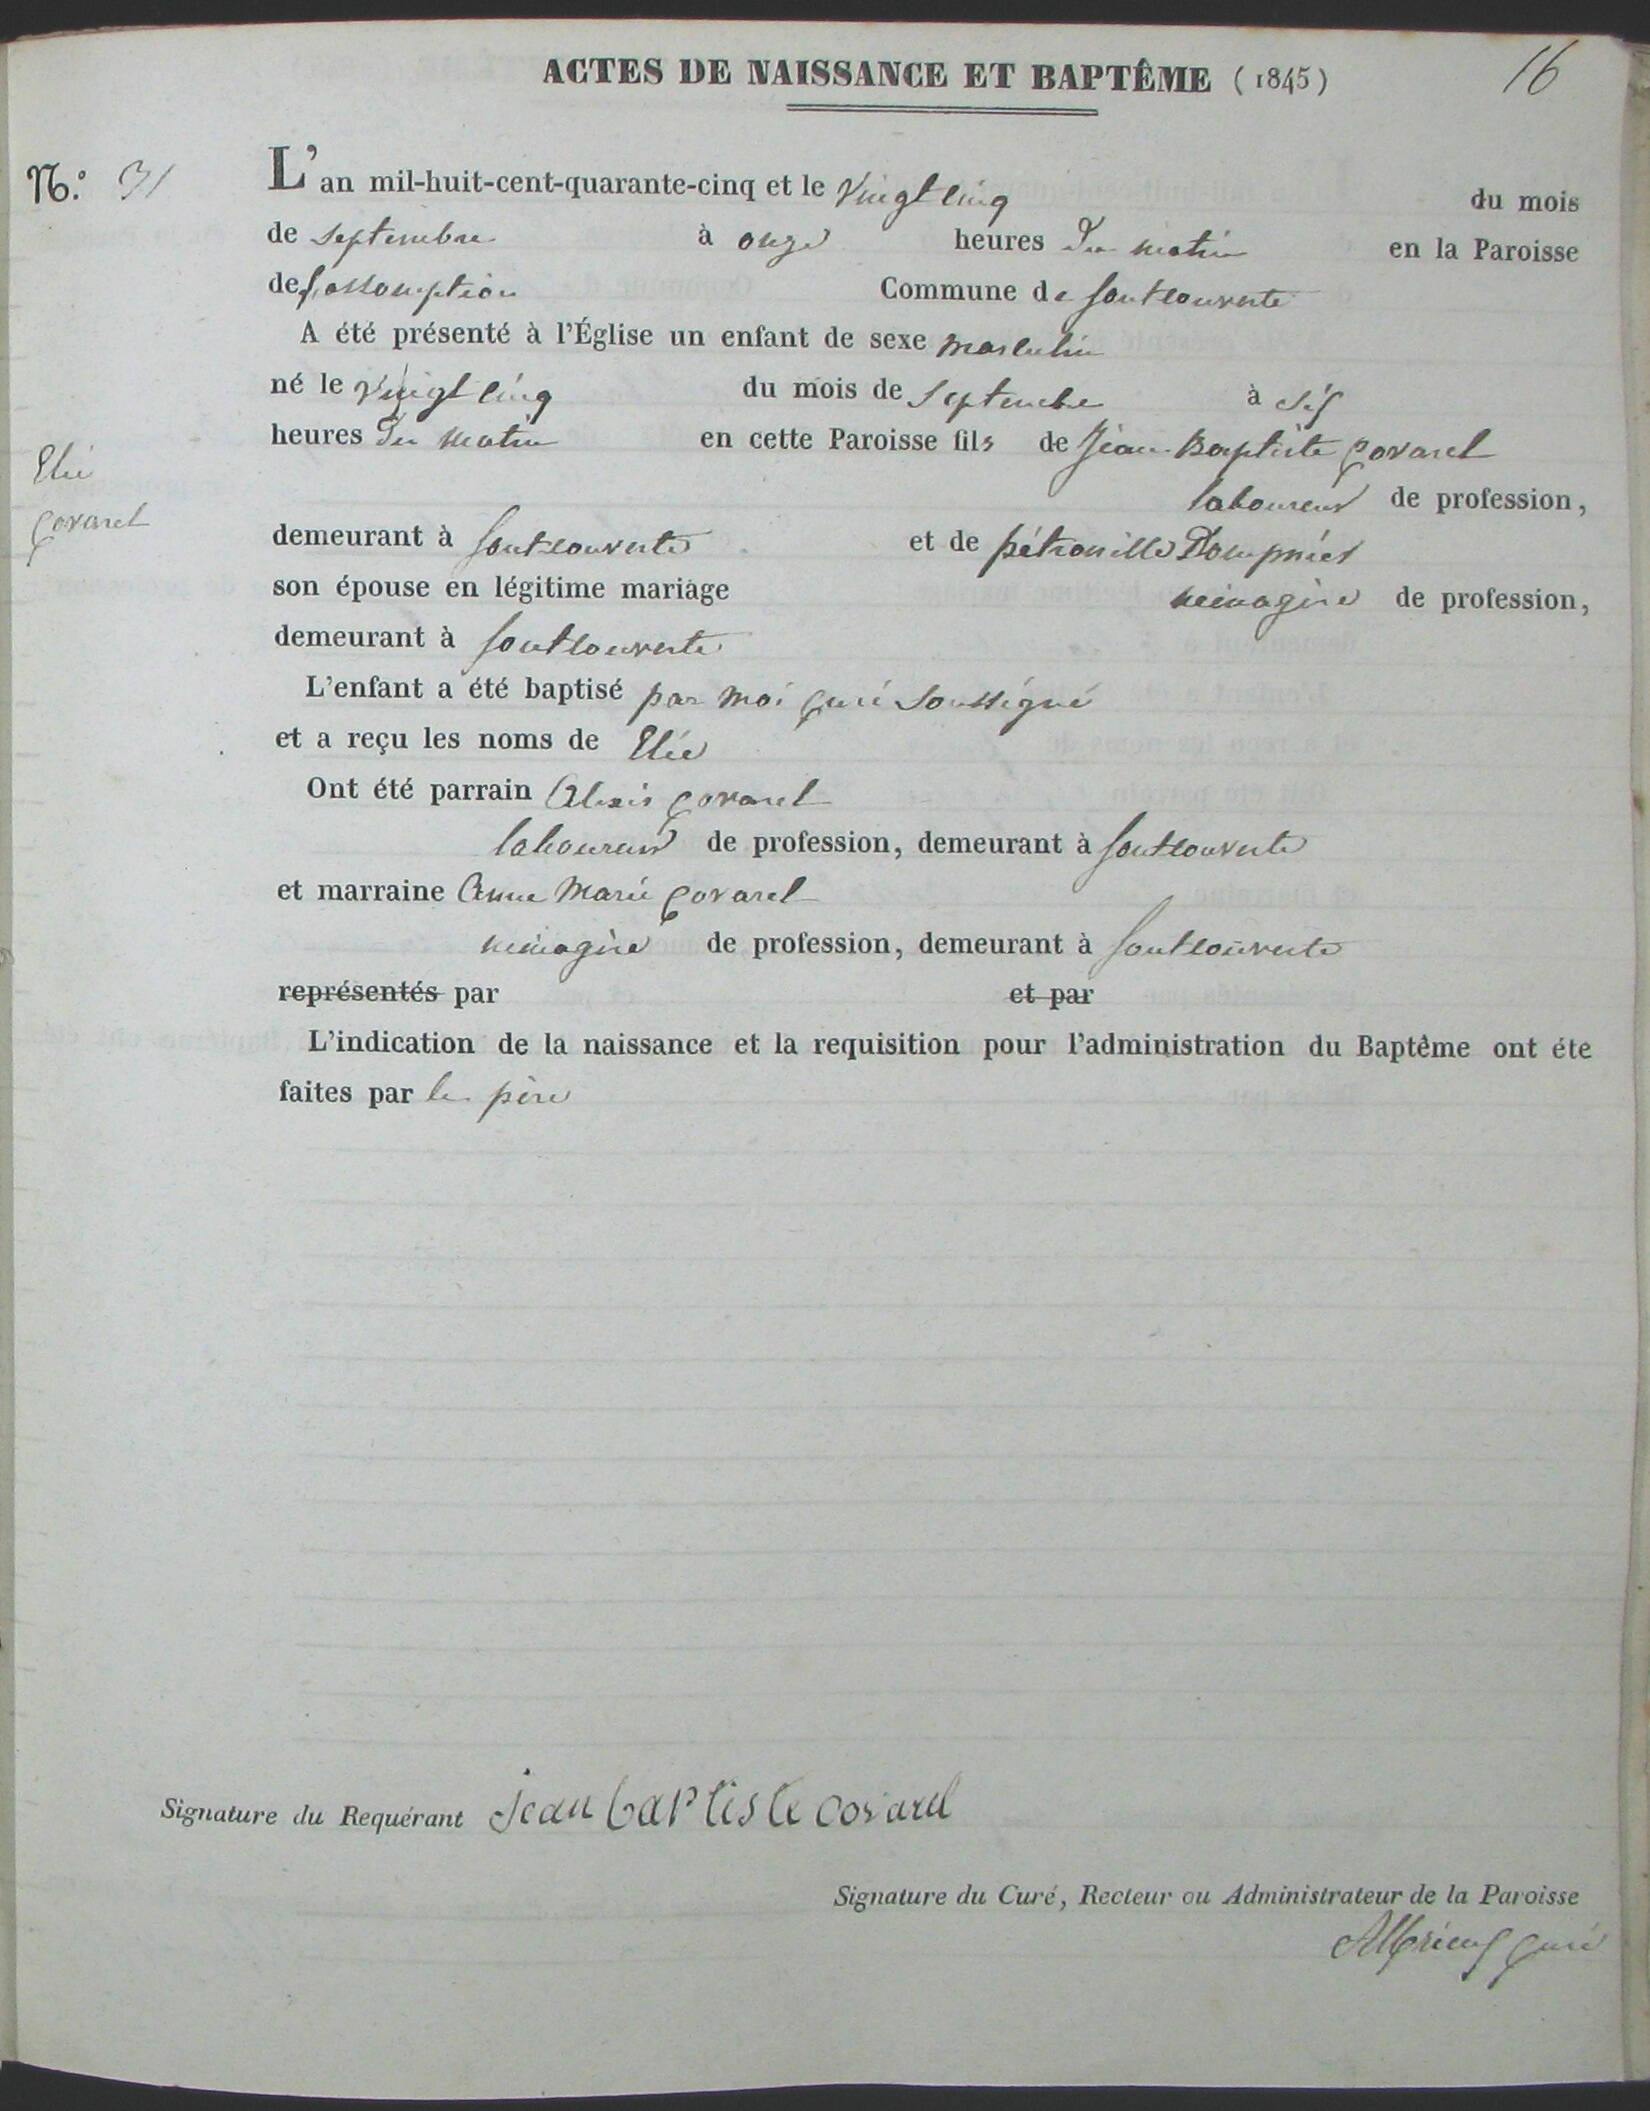 ACTES DE NAISSANCE ET BAPTÊME (1845) 16
N.º 31 L'an mil-huit-cent-quarante-cinq et le vingt cinq du mois
de septembre à onze heures du matin en la Paroisse
de l'assomption Commune de fontcouverte
A été présenté à l'Église un enfant de sexe masculin
né le vingt cinq du mois de septembre à six
heures du matin en cette Paroisse fils de Jean Baptiste Covarel
Elie
Covarel
laboureur de profession,
demeurant à fontcouverte et de pétronille Dompnier
son épouse en légitime mariage ménagère de profession,
demeurant à fontcouverte
L'enfant a été baptisé par moi Curé soussigné
et a reçu les noms de Elie
Ont été parrain Alexis Covarel
laboureur de profession, demeurant à fontcouverte
et marraine Anne Marie Covarel
ménagère de profession, demeurant à fontcouverte
représentés par et par
L'indication de la naissance et la requisition pour l'administration du Baptême ont éte
faites par le père
Signature du Requérant jean baptiste covarel
Signature du Curé, Recteur ou Administrateur de la Paroisse
Curé